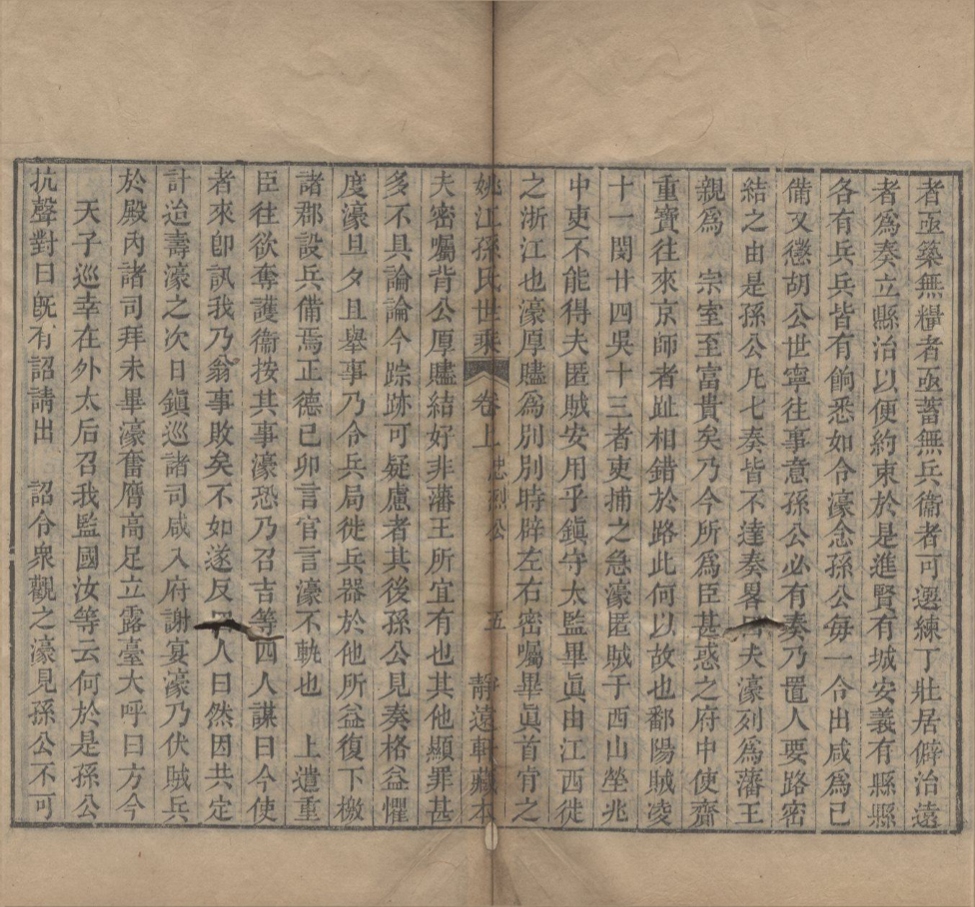 者亟築無糧者亟蓄無兵衞者可選練丁壯居僻治遠
者爲奏立縣治以便約束於是進賢有城安義有縣縣
各有兵兵皆有餉悉如令濠念孫公每一令出咸爲已
備又懲胡公世寧往事意孫公必有奏乃置人要路密
結之由是孫公凡七奏皆不達奏畧曰夫濠列爲藩王
親爲　宗室至富貴矣乃今所爲臣甚惑之府中使齎
重寶往來京師者趾相錯於路此何以故也鄱陽賊凌
十一閔廿四吳十三者吏捕之急濠匿賊于西山塋兆
中吏不能得夫匿賊安用乎鎭守太監畢眞由江西徙
之浙江也濠厚贐爲別別時辟左右密囑畢眞首肯之
姚江孫氏世乘　卷上　忠烈公　五　靜遠軒藏本
夫密囑背公厚贐結好非藩王所宜有也其他顯罪甚
多不具論論今踪跡可疑慮者其後孫公見奏格益懼
度濠旦夕且舉事乃令兵局徙兵器於他所益復下檄
諸郡設兵備焉正德己卯言官言濠不軌也　上遣重
臣往欲奪護衞按其事濠恐乃召吉等四人謀曰今使
者來卽訊我乃翁事敗矣不如遂反四人曰然因共定
計迨壽濠之次日鎭巡諸司咸入府謝宴濠乃伏賊兵
於殿內諸司拜未畢濠奮膺高足立露臺大呼曰方今
天子巡幸在外太后召我監國汝等云何於是孫公
抗聲對曰旣有詔請出　詔令衆觀之濠見孫公不可